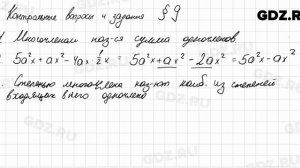 GDZ.RU
Контрольные вопросы и задания § 9
1. Многочленом наз-ся сумма одночленов
5a²x + ax² - 4ax · ½x = 5a²x + ax² - 2ax² = 5a²x - ax²
Степенью многочлена наз-ют наиб. из степеней
входящих в него одночлено
GDZ.RU